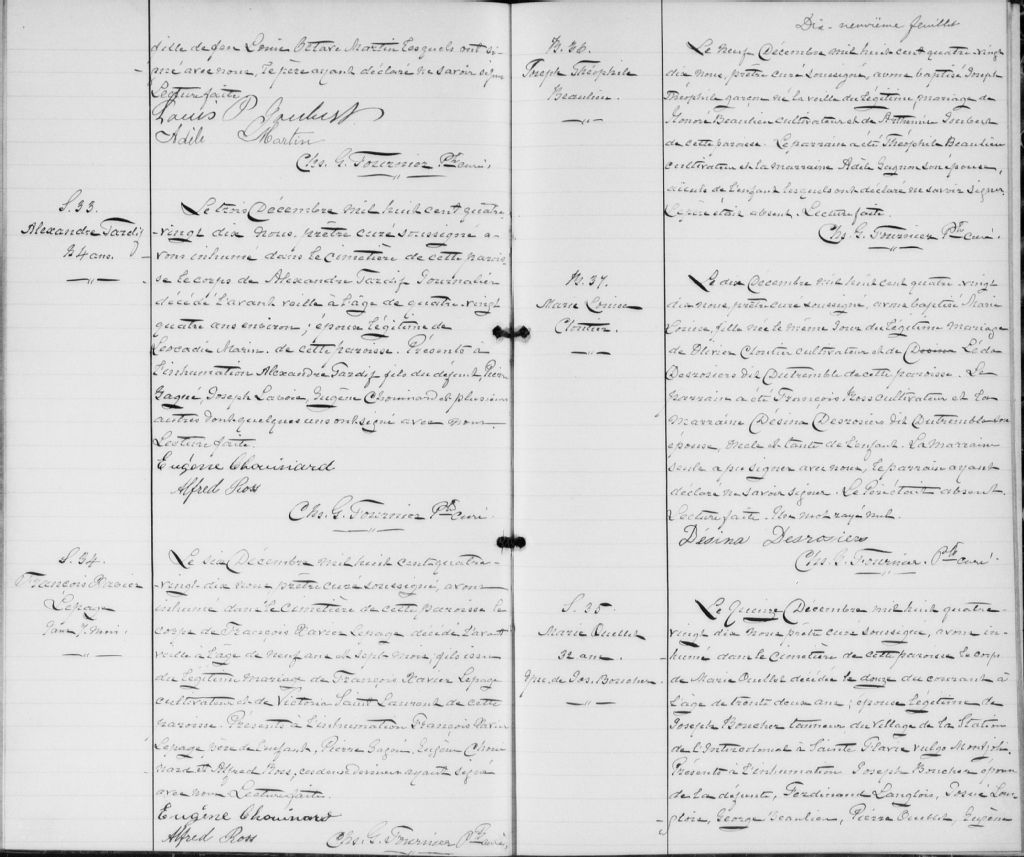 fille de feu Louis Octave Martin lesquels ont si-
gné avec nous, le père ayant déclaré ne savoir signer
Lecture faite
Louis P Joubert
Adèle Martin
Chs. G. Fournier Ptre curé.
S. 33.
Alexandre Tardif
84 ans.
Le trois Décembre mil huit cent quatre-
-vingt dix nous, prêtre curé soussigné a-
vons inhumé dans le cimetière de cette parois-
se le corps de Alexandre Tardif Journalier
décédé l'avant veille à l'âge de quatre-vingt
quatre ans environ; époux légitime de
Leocadie Marin, de cette paroisse. Présents à
l'inhumation Alexandre Tardif fils du défunt, Pierre
Gagné, Joseph Lavoie, Eugène Chouinard et plusieurs
autres dont quelques uns ont signé avec nous.
Lecture faite.
Eugène Chouinard
Alfred Ross
Chs. G. Fournier Ptre curé.
S. 34.
François Xavier
Lepage
9 ans 7 mois.
Le six Décembre mil huit cent quatre-
-vingt-dix nous prêtre curé soussigné, avons
inhumé dans le cimetière de cette paroisse le
corps de François Xavier Lepage décédé l'avant
veille à l'âge de neuf ans et sept mois, fils issu
du légitime mariage de François Xavier Lepage
cultivateur et de Victoria Saint Laurent de cette
paroisse. Présents à l'inhumation François Xavier
Lepage père de l'enfant, Pierre Gagnon, Eugène Choui-
nard et Alfred Ross, ces deux derniers ayant signé
avec nous Lecture faite.
Eugène Chouinard
Alfred Ross Chs. G. Fournier Ptre curé.
Dix-neuvième feuillet
B. 36.
Joseph Théophile
Beaulieu.
Le neuf Décembre mil huit cent quatre-vingt
dix nous, prêtre curé soussigné, avons baptisé Joseph
Théophile garçon né la veille du légitime mariage de
Honoré Beaulieu cultivateur et de Arthémise Joubert
de cette paroisse. Le parrain a été Théophile Beaulieu
cultivateur et la marraine Adèle Gagnon son épouse,
aieuls de l'enfant lesquels ont déclaré ne savoir signer.
Le père était absent. Lecture faite.
Chs. G. Fournier Ptre curé.
B. 37.
Marie Louise
Cloutier.
Le dix Décembre mil huit cent quatre-vingt
dix nous, prêtre curé soussigné, avons baptisé Marie
Louise, fille née le même jour du légitime mariage
de Olivier Cloutier cultivateur et de Desina Léda
Desrosiers dit Dutremble de cette paroisse. Le
parrain a été François Ross cultivateur et la
marraine Désina Desrosiers dit Dutremble son
épouse, oncle et tante de l'enfant. La marraine
seule a pu signer avec nous, le parrain ayant
déclaré ne savoir signer. Le Père était absent.
Lecture faite. Un mot rayé nul.
Désina Desrosiers
Chs. G. Fournier, Ptre curé.
S. 35
Marie Ouellet
32 ans.
Epse. de Jos. Boucher
Le Quinze Décembre mil huit quatre-
vingt dix nous prêtre curé soussigné, avons in-
humé dans le cimetière de cette paroisse le corps
de Marie Ouellet décédée le douze du courant à
l'âge de trente deux ans; épouse légitime de
Joseph Boucher tanneur du village de la Station
de l'Intercolonial à Sainte Flavie vulgo Montjoli.
Présents à l'inhumation Joseph Boucher époux
de la défunte, Ferdinand Langlois, Josué Lan-
glois, George Beaulieu, Pierre Ouellet, Eugène